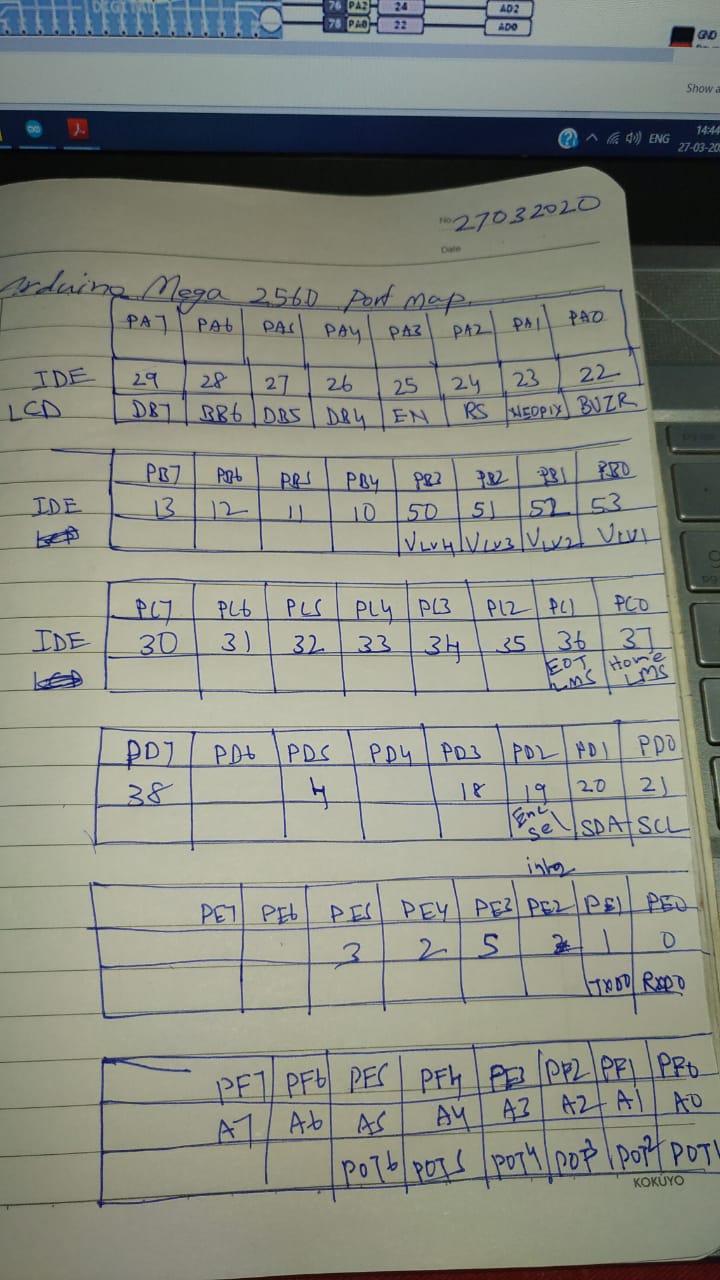 DIGITAL
76 PA2 24 AD2
78 PA0 22 AD0
GND
Show a
ENG 14:44
27-03-20
No. 27032020
Date
Arduino Mega 2560 Port map
PA7 PA6 PA5 PA4 PA3 PA2 PA1 PA0
IDE 29 28 27 26 25 24 23 22
LCD DB7 BB6 DB5 DB4 EN RS NEOPIX BUZR
PB7 PB6 PB5 PB4 PB3 PB2 PB1 PB0
IDE 13 12 11 10 50 51 52 53
VLV4 VLV3 VLV2 VLV1
PC7 PC6 PC5 PC4 PC3 PC2 PC1 PC0
IDE 30 31 32 33 34 35 36 37
EOT LMS Home LMS
PD7 PD6 PD5 PD4 PD3 PD2 PD1 PD0
38 4 18 19 20 21
Enc Sel SDA SCL
PE7 PE6 PE5 PE4 PE3 PE2 PE1 PE0
3 2 5 1 0
TXD0 RXD0
PF7 PF6 PF5 PF4 PF3 PF2 PF1 PF0
A7 A6 A5 A4 A3 A2 A1 A0
POT6 POT5 POT4 POT3 POT2 POT1
KOKUYO